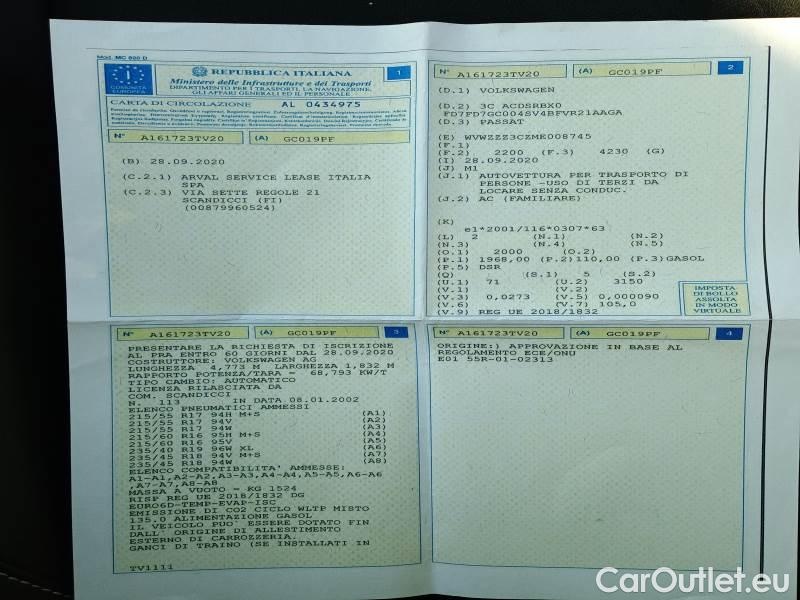 Mod. MC 820 D
REPUBBLICA ITALIANA
Ministero delle Infrastrutture e dei Trasporti
DIPARTIMENTO PER I TRASPORTI, LA NAVIGAZIONE,
GLI AFFARI GENERALI ED IL PERSONALE
I
COMUNITÀ
EUROPEA
1
CARTA DI CIRCOLAZIONE AL 0434975
N° A161723TV20 (A) GC019PF
(B) 28.09.2020
(C.2.1) ARVAL SERVICE LEASE ITALIA
SPA
(C.2.3) VIA SETTE REGOLE 21
SCANDICCI (FI)
(00879960524)
N° A161723TV20 (A) GC019PF 2
(D.1) VOLKSWAGEN
(D.2) 3C ACDSRBX0
FD7FD7GC004SV4BFVR21AAGA
(D.3) PASSAT
(E) WVWZZZ3CZME008745
(F.1)
(F.2) 2200 (F.3) 4230 (G)
(I) 28.09.2020
(J) M1
(J.1) AUTOVETTURA PER TRASPORTO DI
PERSONE -USO DI TERZI DA
LOCARE SENZA CONDUC.
(J.2) AC (FAMILIARE)
(K)
e1*2001/116*0307*63
(L) 2 (N.1) (N.2)
(N.3) (N.4) (N.5)
(O.1) 2000 (O.2)
(P.1) 1968,00 (P.2)110,00 (P.3)GASOL
(P.5) DSR
(Q) (S.1) 5 (S.2)
(U.1) 71 (U.2) 3150
(V.1) (V.2)
(V.3) 0,0273 (V.5) 0,000090
(V.6) (V.7) 105,0
(V.9) REG UE 2018/1832
IMPOSTA
DI BOLLO
ASSOLTA
IN MODO
VIRTUALE
N° A161723TV20 (A) GC019PF 3
PRESENTARE LA RICHIESTA DI ISCRIZIONE
AL PRA ENTRO 60 GIORNI DAL 28.09.2020
COSTRUTTORE: VOLKSWAGEN AG
LUNGHEZZA 4,773 M LARGHEZZA 1,832 M
RAPPORTO POTENZA/TARA = 68,793 KW/T
TIPO CAMBIO: AUTOMATICO
LICENZA RILASCIATA DA
COM. SCANDICCI
N. 113 IN DATA 08.01.2002
ELENCO PNEUMATICI AMMESSI
215/55 R17 94H M+S (A1)
215/55 R17 94V (A2)
215/55 R17 94W (A3)
215/60 R16 95H M+S (A4)
215/60 R16 95V (A5)
235/40 R19 96W XL (A6)
235/45 R18 94V M+S (A7)
235/45 R18 94W (A8)
ELENCO COMPATIBILITA' AMMESSE:
A1-A1,A2-A2,A3-A3,A4-A4,A5-A5,A6-A6
,A7-A7,A8-A8
MASSA A VUOTO = KG 1524
RISP REG UE 2018/1832 DG
EURO6D-TEMP-EVAP-ISC
EMISSIONE DI CO2 CICLO WLTP MISTO
135.0 ALIMENTAZIONE GASOL
IL VEICOLO PUO' ESSERE DOTATO FIN
DALL' ORIGINE DI ALLESTIMENTO
ESTERNO DI CARROZZERIA.
GANCI DI TRAINO (SE INSTALLATI IN
TV1111
N° A161723TV20 (A) GC019PF 4
ORIGINE:) APPROVAZIONE IN BASE AL
REGOLAMENTO ECE/ONU
E01 55R-01-02313
CarOutlet.eu